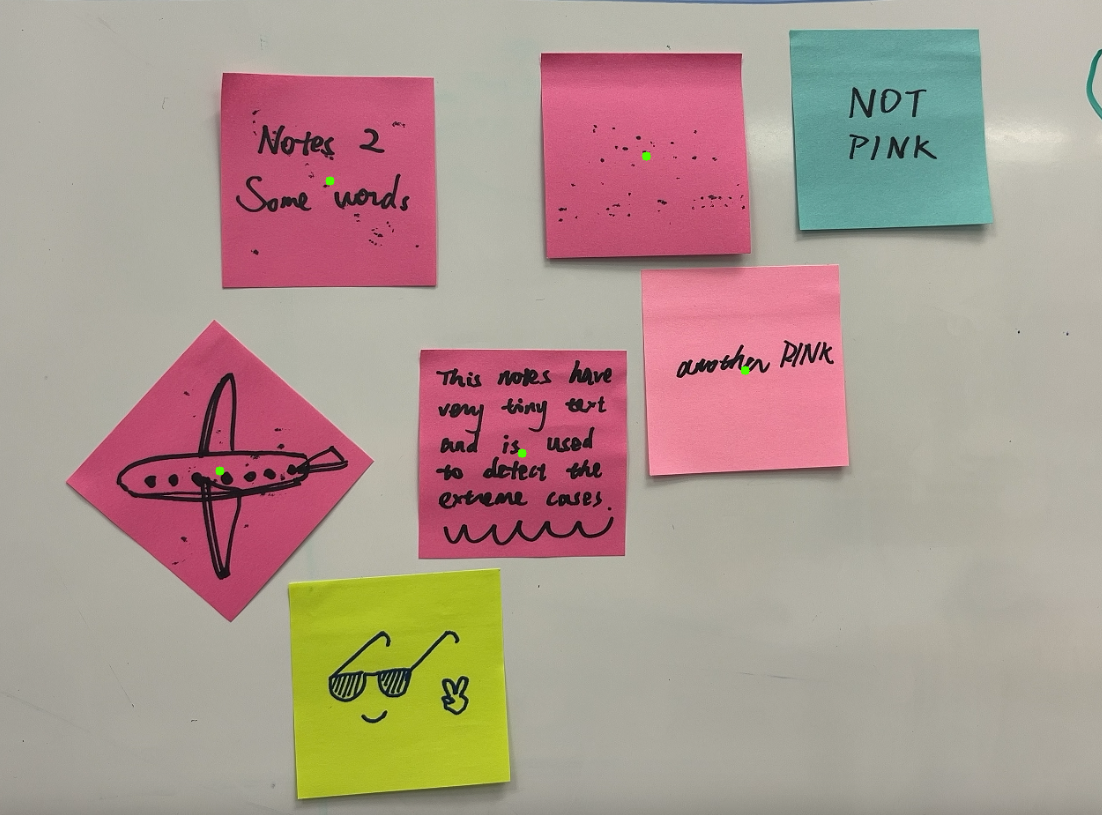 Notes 2
Some words
NOT
PINK
another PINK
This notes have
very tiny text
and is used
to detect the
extreme cases.